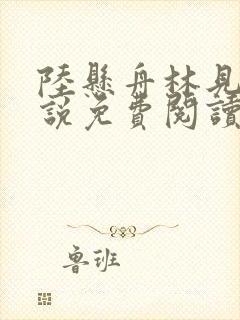 陸懸舟林見
說免費閱讀
魯班